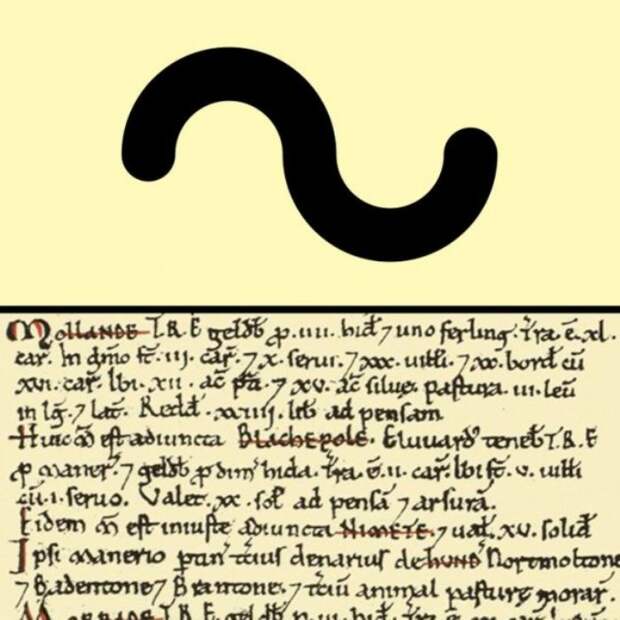 ~
Mollande T.R.E geldƀ ꝑ .iiii. hid̄ ⁊ uno ferling. Tr̄a .ē. xl.
car̄. In dñio st̄ .iii. car̄. ⁊ x. serui. ⁊ xxx. uiłłi. ⁊ xx. bord̄ cū
xvi. car̄. Ibi .xii. ac̄ p̃ti. ⁊ xv. ac̄ siluę. Pastura .iii. leū
in lḡ. ⁊ lat̄. Redd̄ .xxiiii. lib̄ ad pensam
Huic m̃ est adiuncta Blachepole. Eluuard᾿ teneƀ T.R.E
ꝑ maner̄. ⁊ geldƀ ꝑ dim̄ hida. Tr̄a .ē. ii. car̄. Ibi st̄ .v. uiłłi
cū .i. seruo. Valet .xx. sol᾿ ad pensā ⁊ arsurā.
Eidem m̃ est iniuste adiuncta Nimete. ⁊ ual̄ .xv. solid̄
Ipsi manerio ptin᾿ t̄cius denarius de hund᾿ Nortmoltone
⁊ Badentone ⁊ Brantone. ⁊ t̄ciū animal pasturę morar᾿.